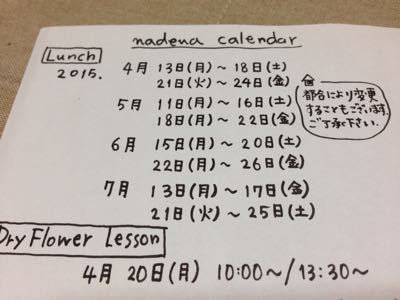 nadena calendar
Lunch
2015.
4月 13日(月)〜18日(土)
21日(火)〜24日(金)
5月 11日(月)〜16日(土)
18日(月)〜22日(金)
都合により変更
することもございます。
ご了承下さい。
6月 15日(月)〜20日(土)
22日(月)〜26日(金)
7月 13日(月)〜17日(金)
21日(火)〜25日(土)
Dry Flower Lesson
4月 20日(月) 10:00〜/13:30〜